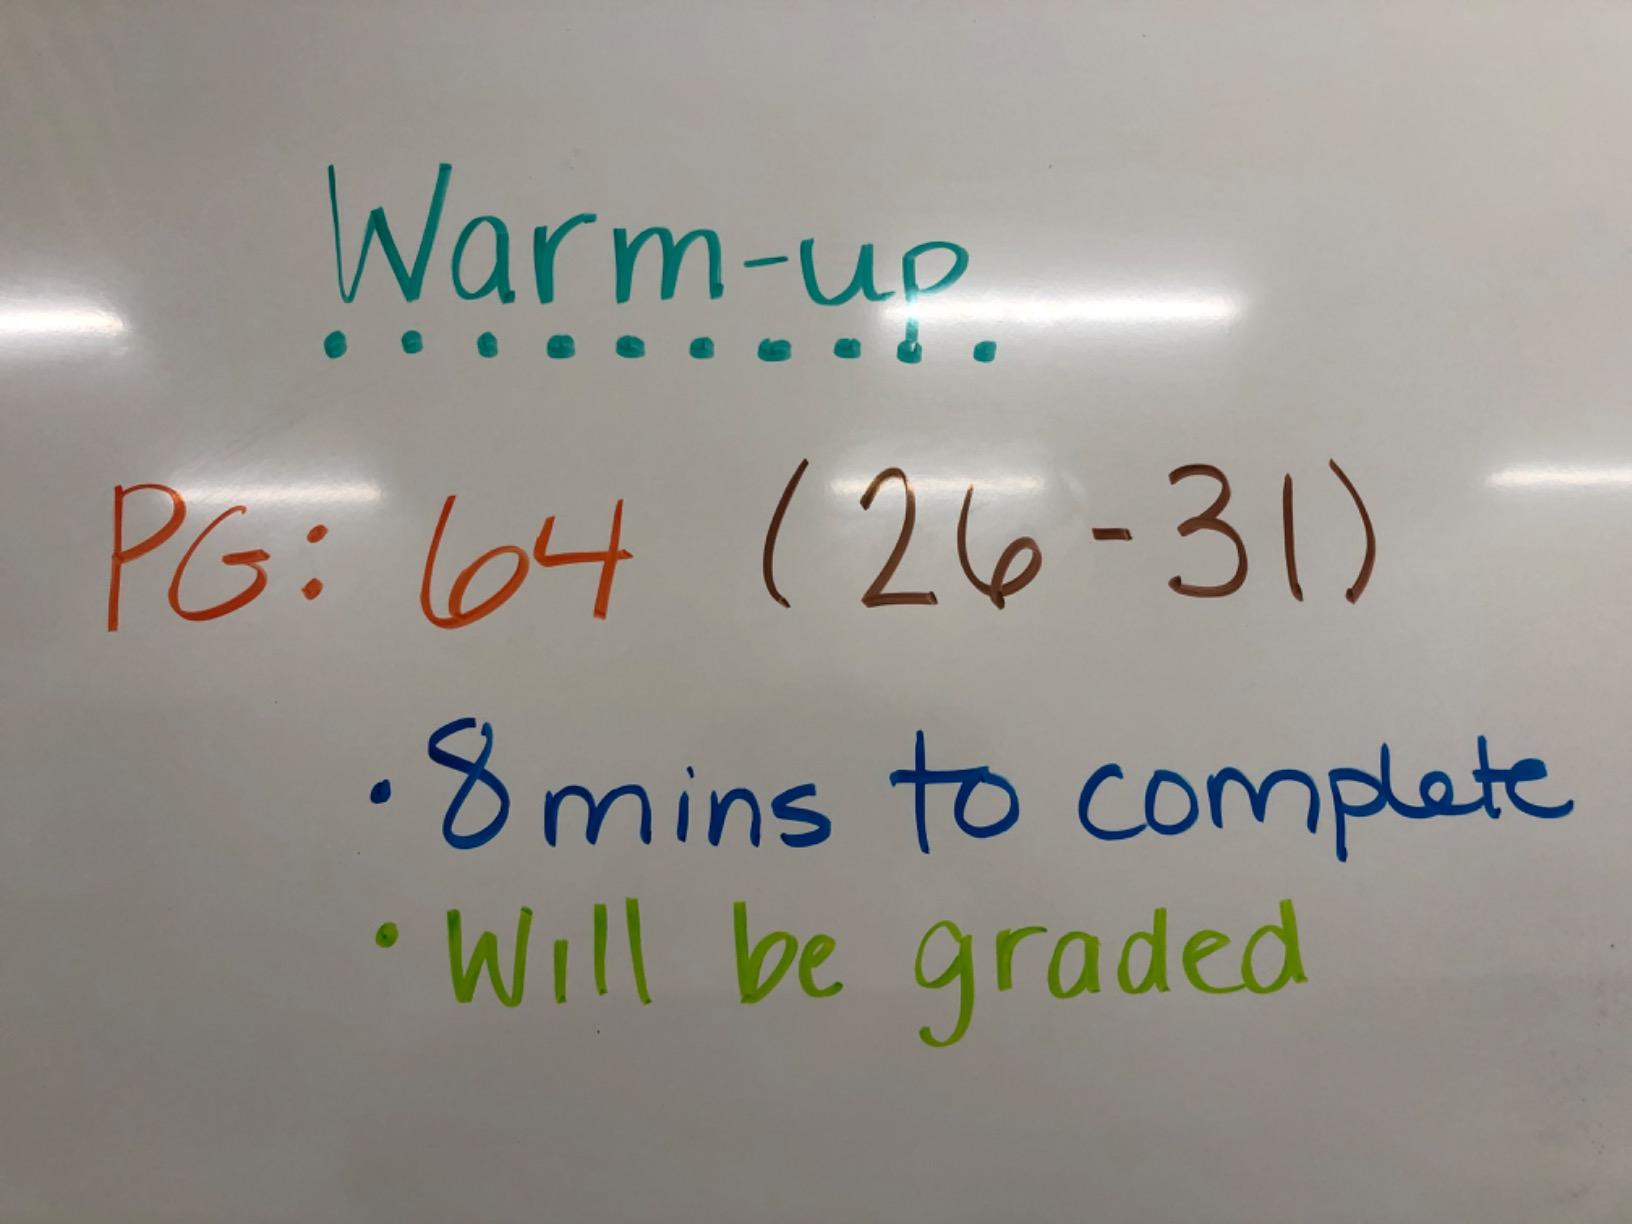 Warm-up
PG: 64 (26-31)
• 8 mins to complete
• Will be graded